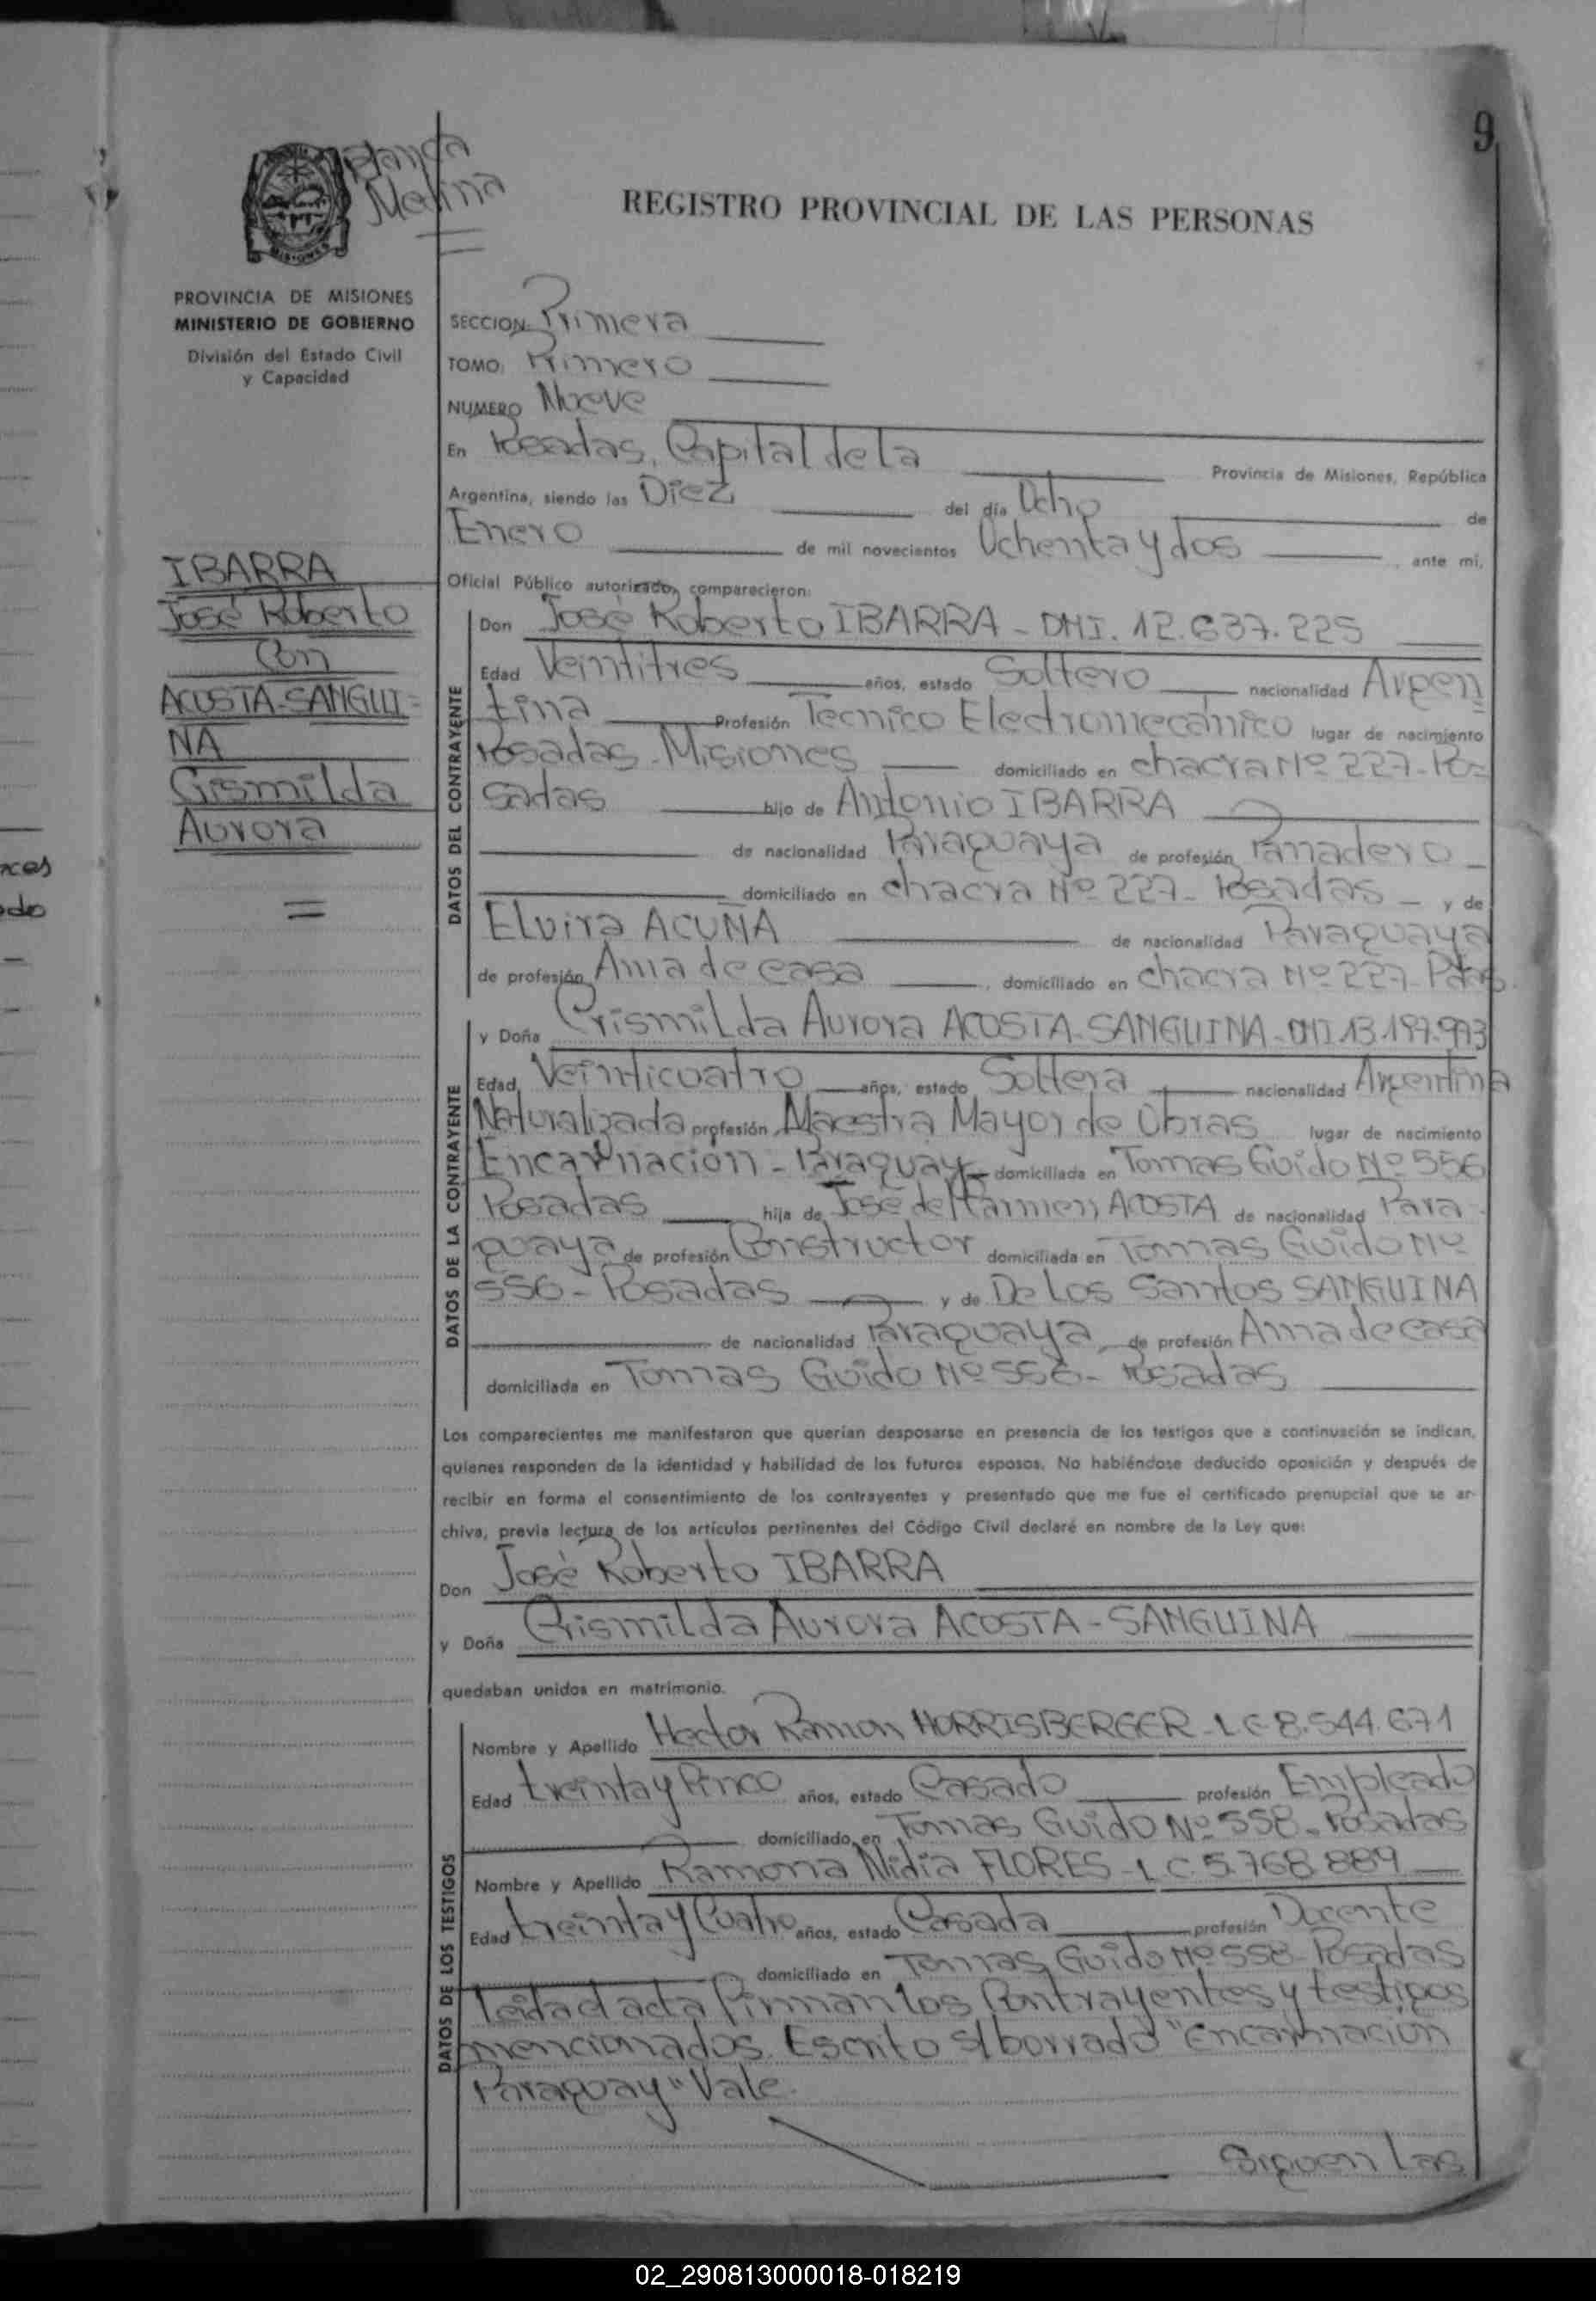 9
Blanca
Melina
REGISTRO PROVINCIAL DE LAS PERSONAS
MISIONES
PROVINCIA DE MISIONES
MINISTERIO DE GOBIERNO
División del Estado Civil
y Capacidad
IBARRA
José Roberto
Con
ACOSTA-SANGUI=
NA
Crismilda
Aurora
SECCION: Primera
TOMO: Primero
NUMERO Nueve
En Posadas, Capital de la Provincia de Misiones, República
Argentina, siendo las Diez del día Ocho de
Enero de mil novecientos Ochenta y dos, ante mi,
Oficial Público autorizado, comparecieron:
DATOS DEL CONTRAYENTE
Don José Roberto IBARRA - DNI. 12.637.225
Edad Veintitres años, estado Soltero nacionalidad Argen
tina Profesión Tecnico Electromecánico lugar de nacimiento
Posadas - Misiones domiciliado en chacra Nº 227 - Po=
sadas hijo de Antonio IBARRA
de nacionalidad Paraguaya de profesión Panadero
domiciliado en chacra Nº 227 - Posadas - y de
Elvira ACUÑA de nacionalidad Paraguaya
de profesión Ama de casa, domiciliado en chacra Nº 227 - Pdas.
DATOS DE LA CONTRAYENTE
y Doña Crismilda Aurora ACOSTA-SANGUINA - DNI.13.197.993
Edad Veinticuatro años, estado Soltera nacionalidad Argentina
Naturalizada profesión Maestra Mayor de Obras lugar de nacimiento
Encarnación - Paraguay - domiciliada en Tomas Guido Nº 556
Posadas hija de José del Carmen ACOSTA de nacionalidad Para-
guaya de profesión Constructor domiciliada en Tomas Guido Nº
556 - Posadas y de De Los Santos SANGUINA
de nacionalidad Paraguaya de profesión Ama de casa
domiciliada en Tomas Guido Nº 556 - Posadas
Los comparecientes me manifestaron que querían desposarse en presencia de los testigos que a continuación se indican,
quienes responden de la identidad y habilidad de los futuros esposos. No habiéndose deducido oposición y después de
recibir en forma el consentimiento de los contrayentes y presentado que me fue el certificado prenupcial que se ar-
chiva, previa lectura de los artículos pertinentes del Código Civil declaré en nombre de la Ley que:
Don José Roberto IBARRA
y Doña Crismilda Aurora ACOSTA - SANGUINA
quedaban unidos en matrimonio.
DATOS DE LOS TESTIGOS
Nombre y Apellido Hector Ramon HORRISBERGER - L E 8.544.671
Edad treinta y Cinco años, estado Casado profesión Empleado
domiciliado en Tomas Guido Nº 558 - Posadas
Nombre y Apellido Ramona Nidia FLORES - L C 5.768.889
Edad treinta y Cuatro años, estado Casada profesión Docente
domiciliado en Tomas Guido Nº 558 - Posadas
leida el acta firman los Contrayentes y testigos
mencionados. Escrito s/borrado "Encarnacion
Paraguay" Vale.
Siguen las
02_290813000018-018219